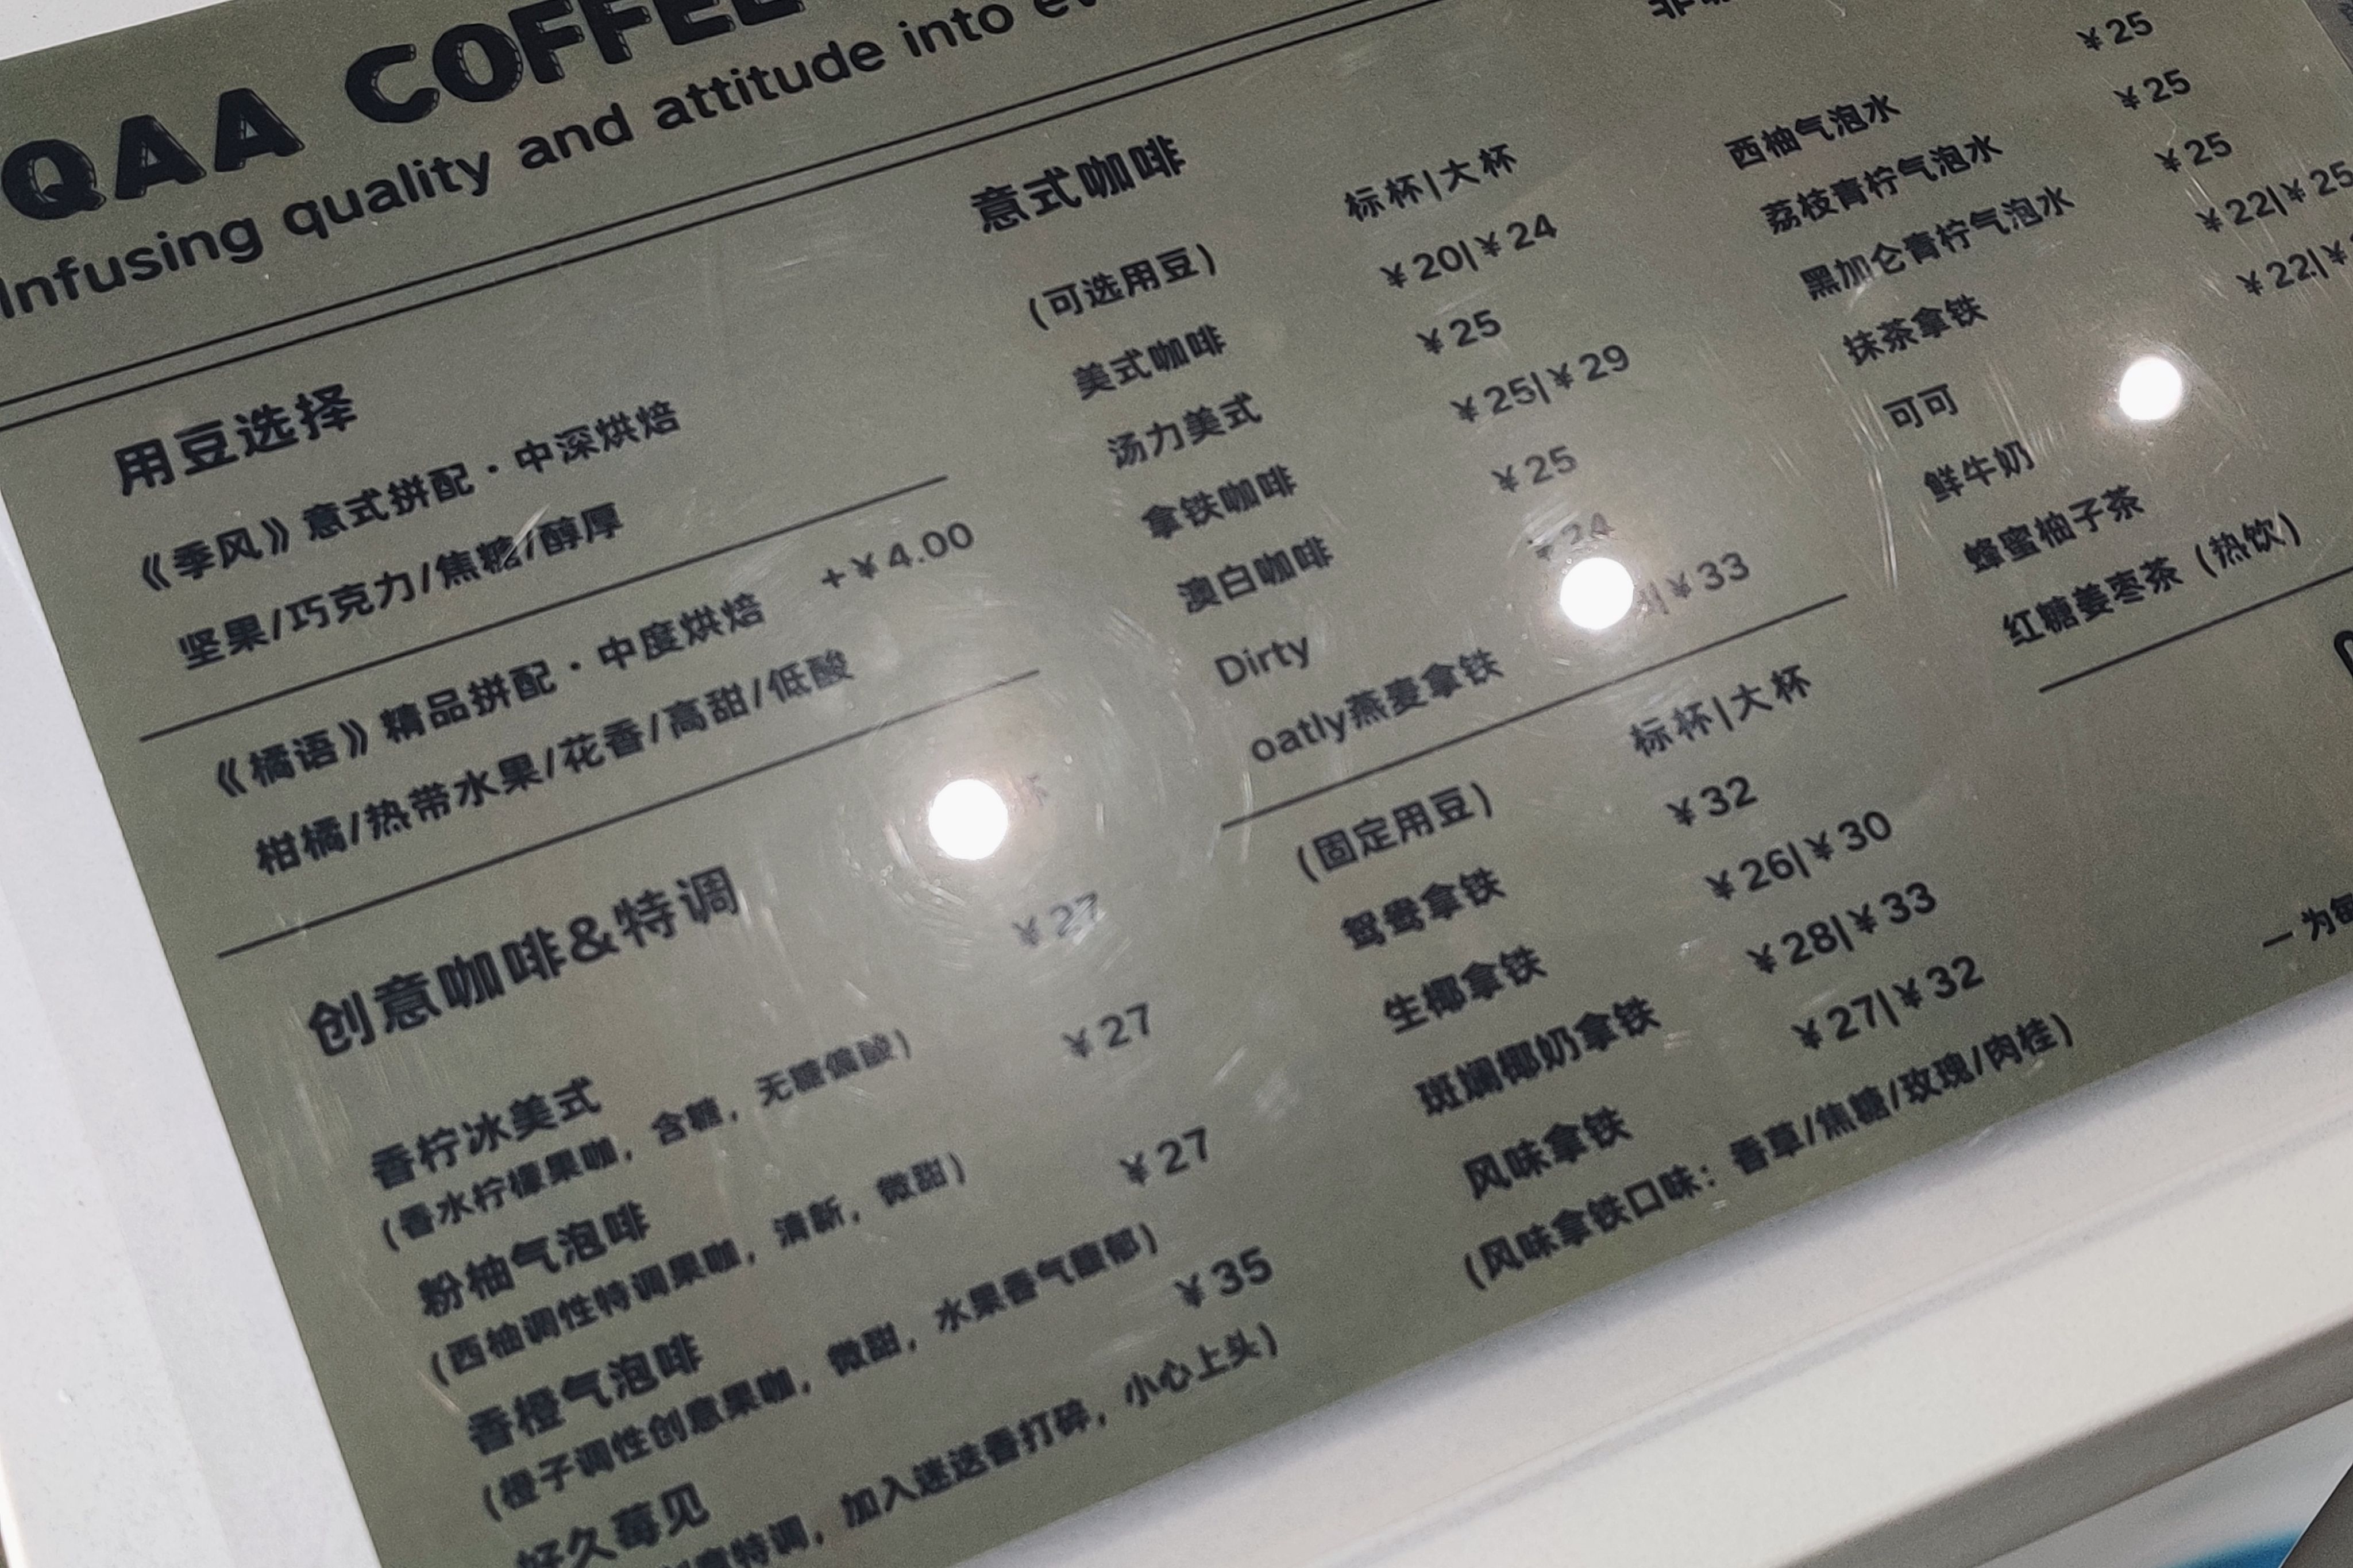 QAA COFFEE
Infusing quality and attitude into
用豆选择
《季风》意式拼配·中深烘焙
坚果/巧克力/焦糖/醇厚
《橘语》精品拼配·中度烘焙 +¥4.00
柑橘/热带水果/花香/高甜/低酸
创意咖啡&特调
香柠冰美式 ¥27
(香水柠檬果咖，含糖，无糖偏酸)
粉柚气泡啡 ¥27
(西柚调性特调果咖，清新，微甜)
香橙气泡啡 ¥27
(橙子调性创意果咖，微甜，水果香气馥郁)
好久莓见 ¥35
特调，加入迷迭香打碎，小心上头)
意式咖啡
(可选用豆) 标杯|大杯
美式咖啡 ¥20|¥24
汤力美式 ¥25
拿铁咖啡 ¥25|¥29
澳白咖啡 ¥25
Dirty ¥24
oatly燕麦拿铁 |¥33
(固定用豆) 标杯|大杯
鸳鸯拿铁 ¥32
生椰拿铁 ¥26|¥30
斑斓椰奶拿铁 ¥28|¥33
风味拿铁 ¥27|¥32
(风味拿铁口味：香草/焦糖/玫瑰/肉桂)
西柚气泡水 ¥25
荔枝青柠气泡水 ¥25
黑加仑青柠气泡水 ¥25
抹茶拿铁 ¥22|¥25
可可 ¥22|¥
鲜牛奶
蜂蜜柚子茶
红糖姜枣茶（热饮）
— 为每